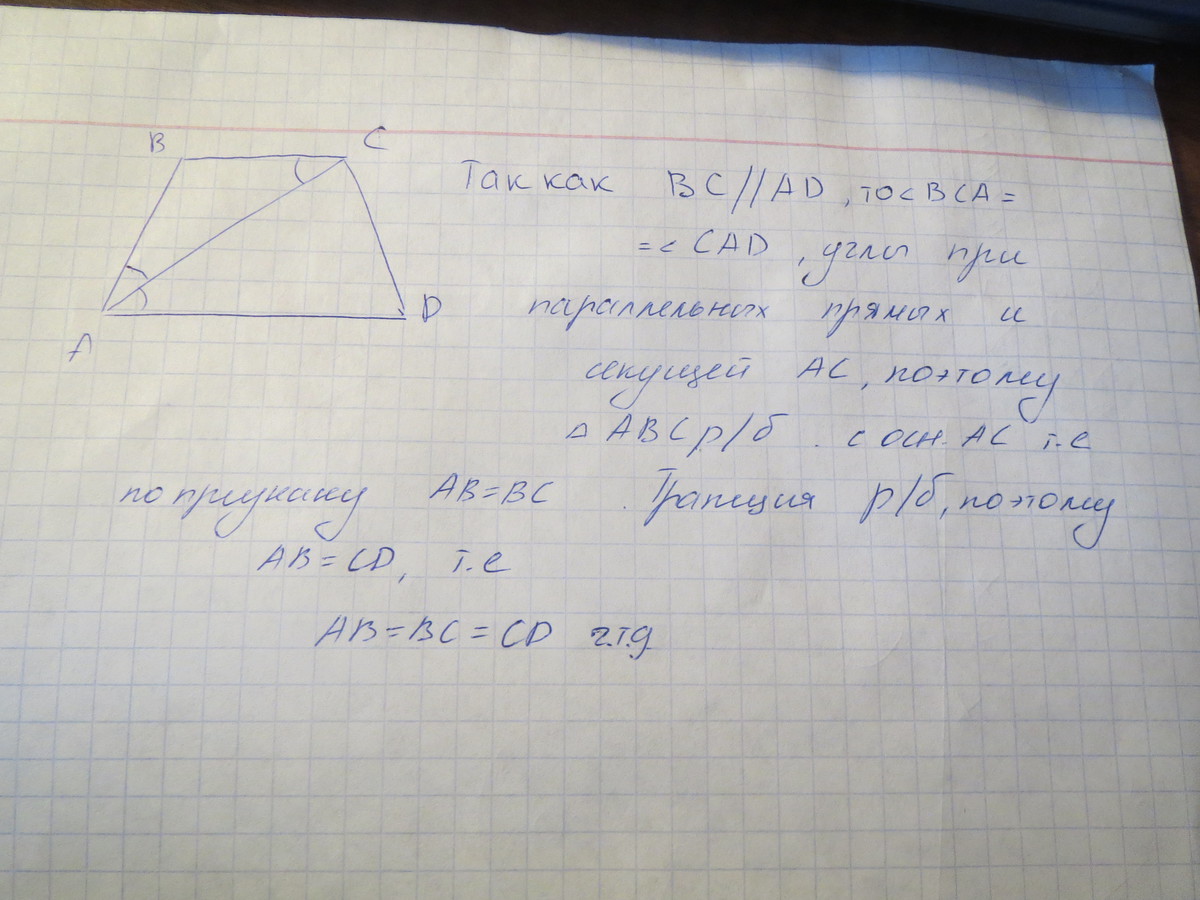 B C
A D
Так как BC//AD, то <BCA =
= < CAD, углы при
параллельных прямых и
секущей AC, поэтому
△ ABC р/б. с осн. AC т.е
по признаку AB=BC. Трапеция р/б, поэтому
AB=CD, т.е
AB=BC=CD ч.т.д